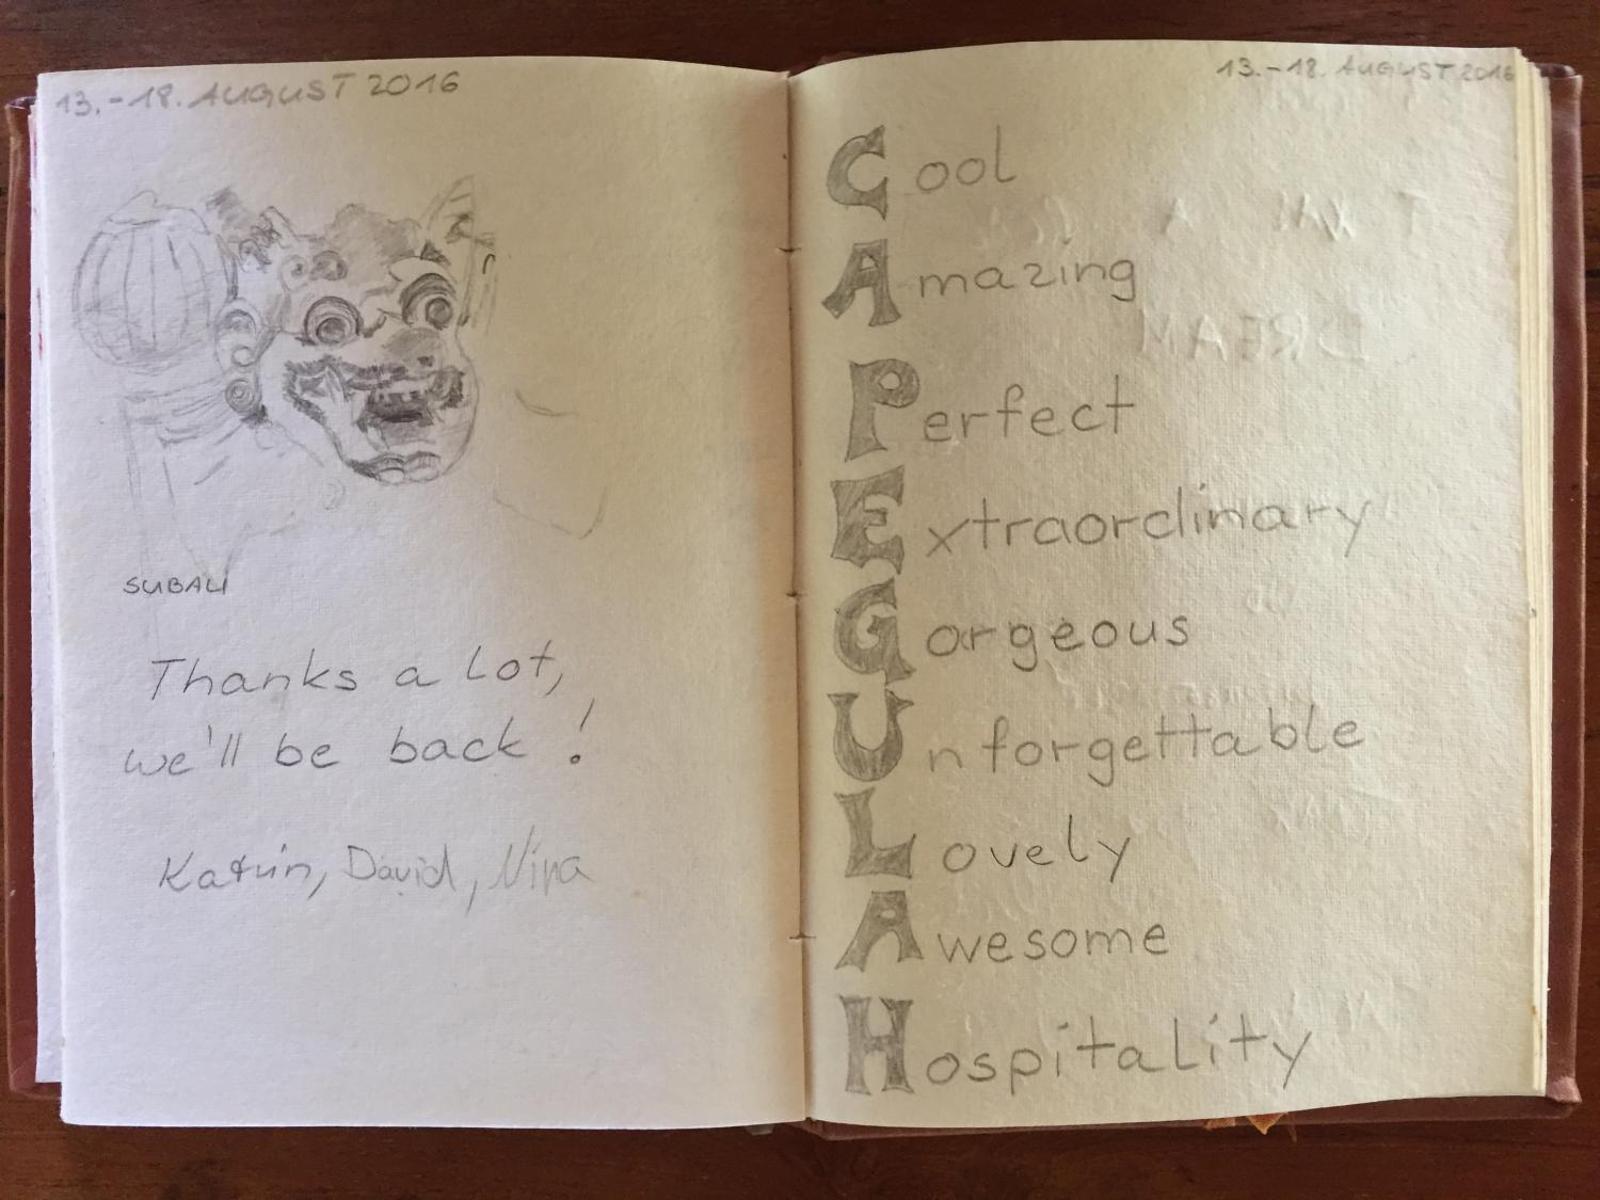 13.-18. AUGUST 2016
SUBALI
Thanks a lot,
we'll be back!
Katrin, David, Nina
13.-18. AUGUST 2016
Cool
Amazing
Perfect
Extraordinary
Gorgeous
Unforgettable
Lovely
Awesome
Hospitality